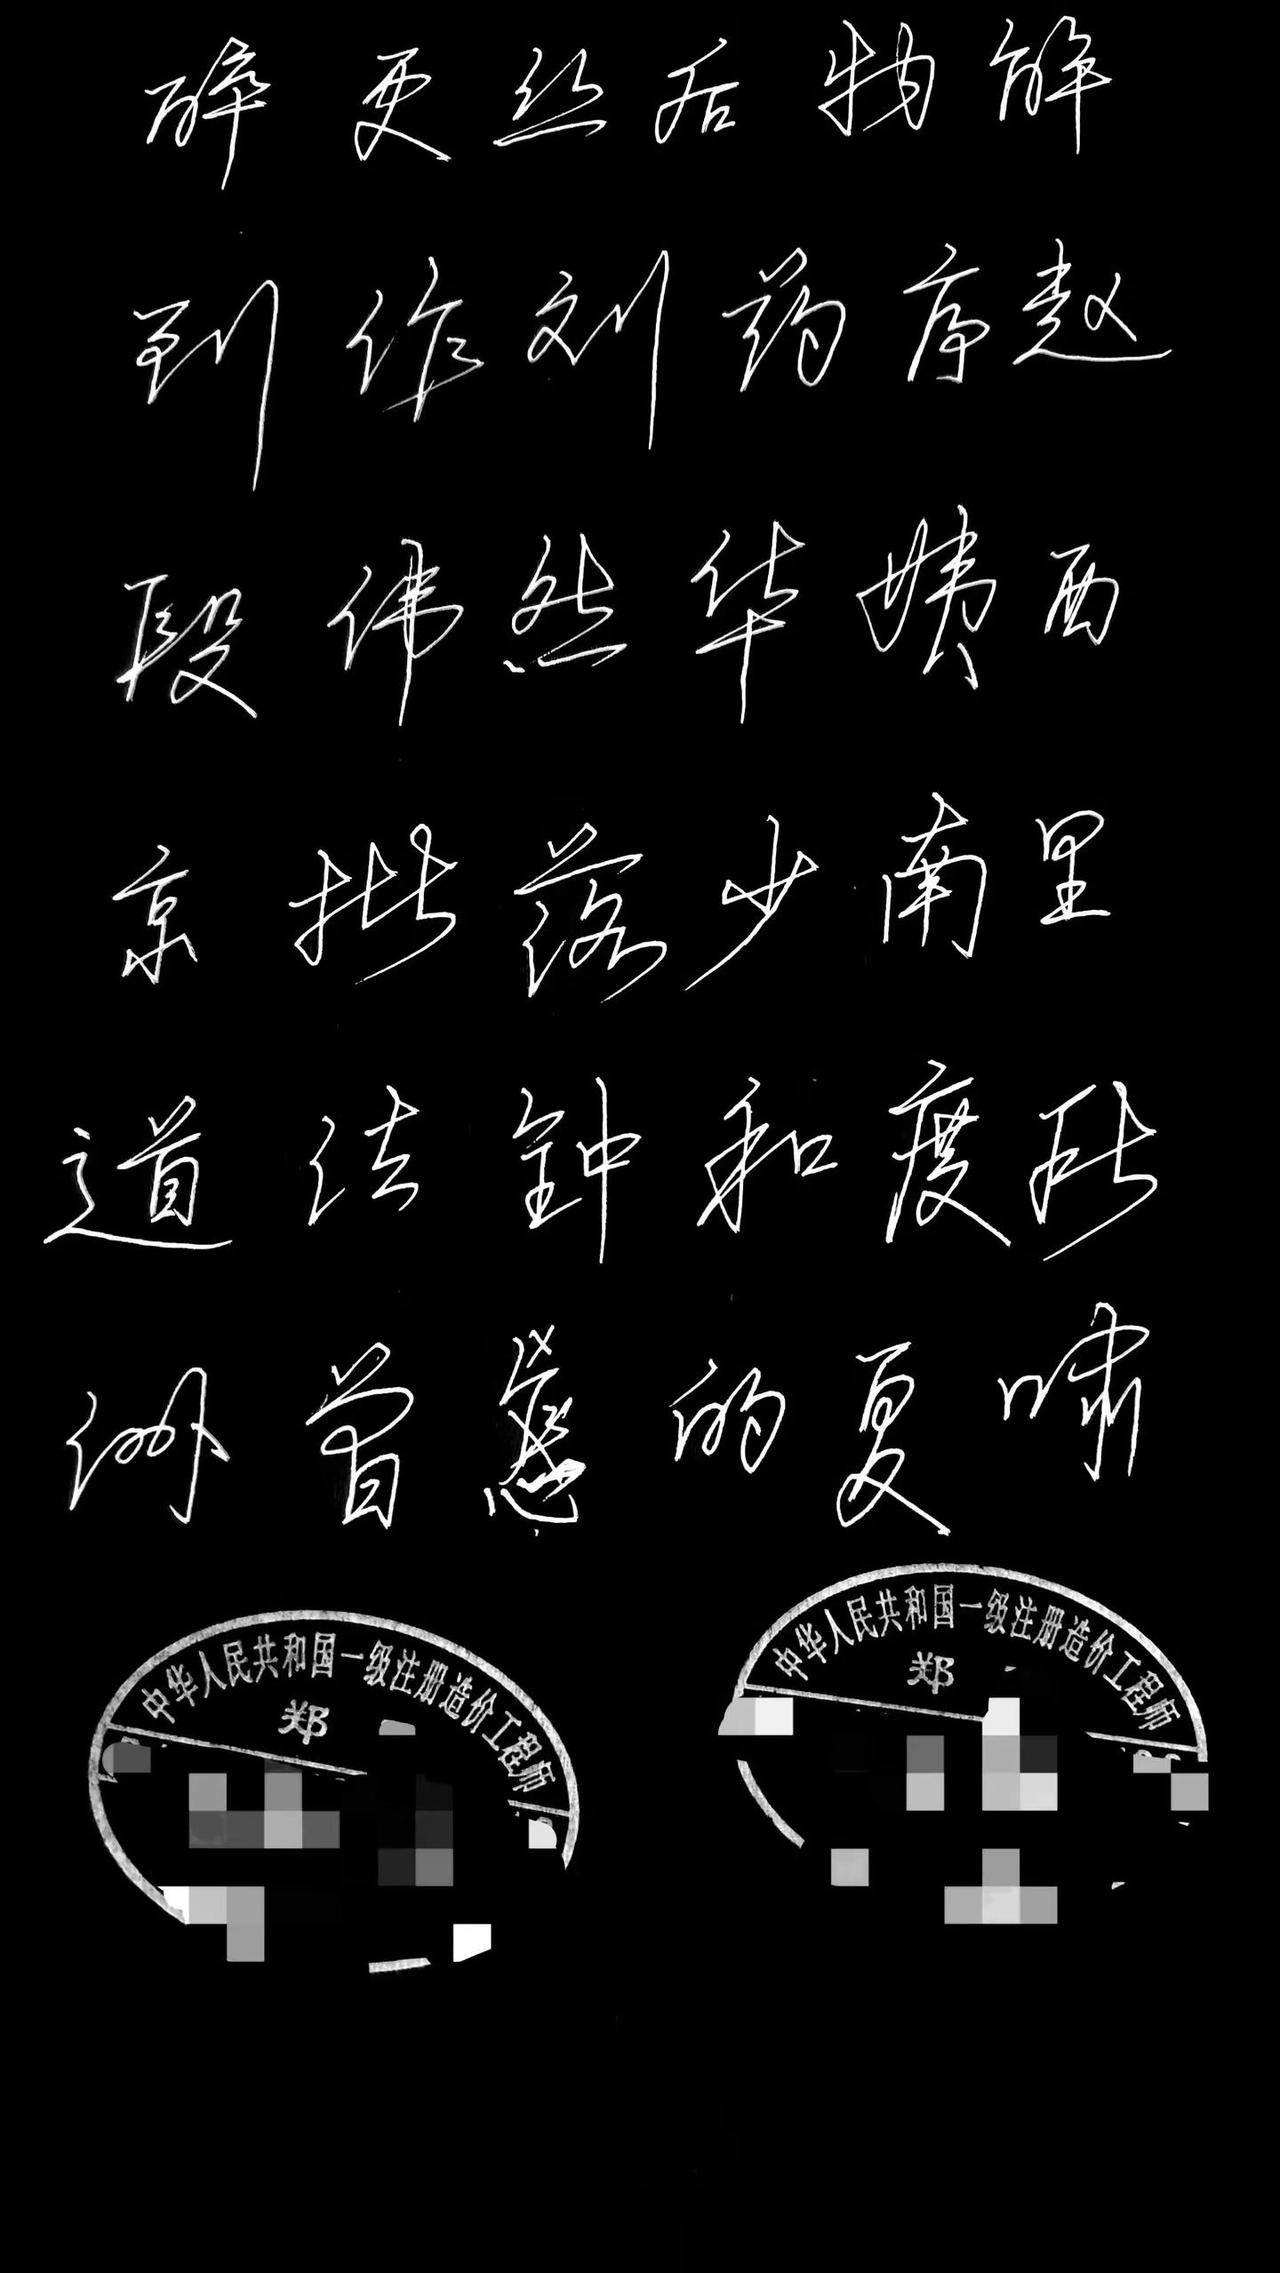 醉更丝后物解
到作刘药序赵
段伟然华姨西
京批落少南里
道法钟和度所
洲曾惹的夏啸
中华人民共和国一级注册造价工程师
郑
中华人民共和国一级注册造价工程师
郑